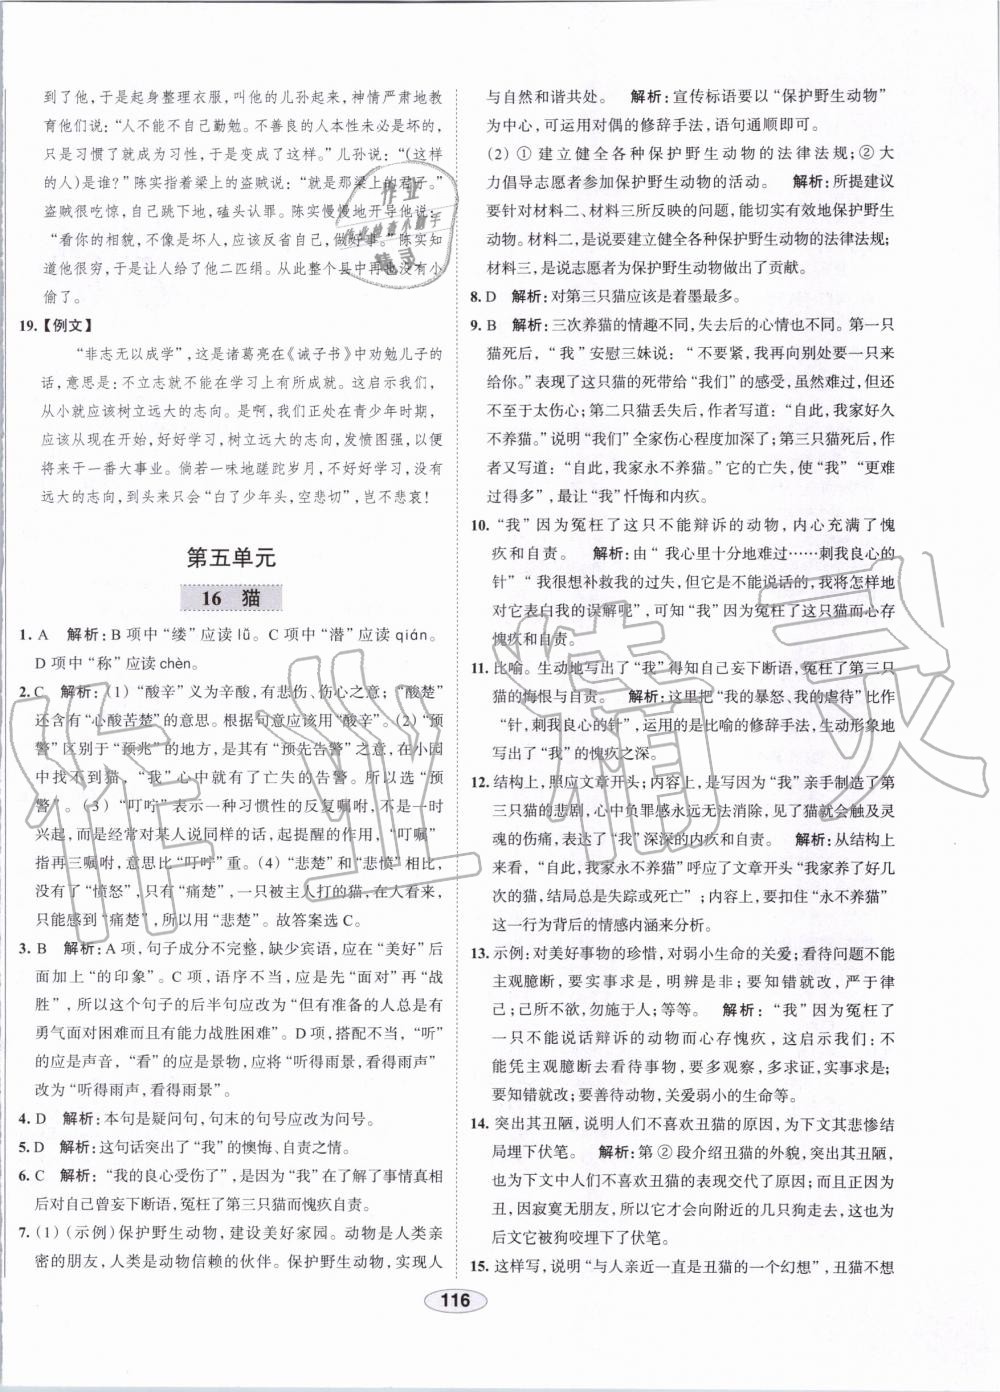 到了他，于是起身整理衣服，叫他的儿孙起来，神情严肃地教
育他们说：“人不能不自己勤勉。不善良的人本性未必是坏的，
只是习惯了就成为习性，于是变成了这样。”儿孙说：“(这样
的人)是谁?”陈实指着梁上的盗贼说：“就是那梁上的君子。”
盗贼很吃惊，自己跳下地，磕头认罪。陈实慢慢地开导他说：
“看你的相貌，不像是坏人，应该反省自己，做好事。”陈实知
道他很穷，于是让人给了他二匹绢。从此整个县中再也没有小
偷了。
19.【例文】
“非志无以成学”，这是诸葛亮在《诫子书》中劝勉儿子的
话，意思是：不立志就不能在学习上有所成就。这启示我们，
从小就应该树立远大的志向。是啊，我们正处在青少年时期，
应该从现在开始，好好学习，树立远大的志向，发愤图强，以便
将来干一番大事业。倘若一味地蹉跎岁月，不好好学习，没有
远大的志向，到头来只会“白了少年头，空悲切”，岂不悲哀！
第五单元
16 猫
1. A 解析：B项中“缕”应读lǚ。C项中“潜”应读qián。
D项中“称”应读chèn。
2. C 解析：(1)“酸辛”义为辛酸，有悲伤、伤心之意；“酸楚”
还含有“心酸苦楚”的意思。根据句意应该用“酸辛”。(2)“预
警”区别于“预兆”的地方，是其有“预先告警”之意，在小园
中找不到猫，“我”心中就有了亡失的告警。所以选“预
警”。(3)“叮咛”表示一种习惯性的反复嘱咐，可不是一时
兴起，而是经常对某人说同样的话，起提醒的作用，“叮嘱”
指再三嘱咐，意思比“叮咛”重。(4)“悲楚”和“悲愤”相比，
没有了“愤怒”，只有“痛楚”，一个被主人打的猫，在人看来，
只能感到“痛楚”，所以用“悲楚”。故答案选C。
3. B 解析：A项，句子成分不完整，缺少宾语，应在“美好”后
面加上“的印象”。C项，语序不当，应是先“面对”再“战
胜”，所以这个句子的后半句应改为“但有准备的人总是有
勇气面对困难而且有能力战胜困难”。D项，搭配不当，“听”
的应是声音，“看”的应是景物，应将“听得雨景，看得雨声”
改为“听得雨声，看得雨景”。
4. D 解析：本句是疑问句，句末的句号应改为问号。
5. D 解析：这句话突出了“我”的懊悔、自责之情。
6. C 解析：“我的良心受伤了”，是因为“我”在了解了事情真相
后对自己曾妄下断语，冤枉了第三只猫而愧疚和自责。
7. (1)(示例)保护野生动物，建设美好家园。动物是人类亲
密的朋友，人类是动物信赖的伙伴。保护野生动物，实现人
与自然和谐共处。 解析：宣传标语要以“保护野生动物”
为中心，可运用对偶的修辞手法，语句通顺即可。
(2)①建立健全各种保护野生动物的法律法规；②大
力倡导志愿者参加保护野生动物的活动。 解析：所提建议
要针对材料二、材料三所反映的问题，能切实有效地保护野生
动物。材料二，是说要建立健全各种保护野生动物的法律法规；
材料三，是说志愿者为保护野生动物做出了贡献。
8. D 解析：对第三只猫应该是着墨最多。
9. B 解析：三次养猫的情趣不同，失去后的心情也不同。第一只
猫死后，“我”安慰三妹说：“不要紧，我再向别处要一只来
给你。”表现了这只猫的死带给“我们”的感受，虽然心酸，但还
不至于太伤心；第二只猫丢失后，作者写道：“自此，我家好久
不养猫。”说明“我们”全家伤心程度加深了；第三只猫死后，作
者又写道：“自此，我家永不养猫。”它的亡失，使“我”“更难
过得多”，最让“我”忏悔和内疚。
10. “我”因为冤枉了这只不能辩诉的动物，内心充满了愧
疚和自责。 解析：由“我心里十分地难过……刺我良心的
针”“我很想补救我的过失，但它是不能说话的，我将怎样地
对它表白我的误解呢”，可知“我”因为冤枉了这只猫而心存
愧疚和自责。
11. 比喻。生动地写出了“我”得知自己妄下断语，冤枉了第三只
猫的悔恨与自责。 解析：这里把“我的暴怒、我的虐待”比作
“针，刺我良心的针”，运用的是比喻的修辞手法，生动形象地
写出了“我”的愧疚之深。
12. 结构上，照应文章开头；内容上，是写因为“我”亲手制造了第
三只猫的悲剧，心中负罪感永远无法消除，见了猫就会触及灵
魂的伤痛，这突出了“我”深深的内疚和自责。 解析：从结构上
来看，“自此，我家永不养猫”呼应了文章开头“我家养了好几
次的猫，结局总是失踪或死亡”；内容上，要扣住“永不养猫”
这一行为背后的情感内涵来分析。
13. 示例：对美好事物的珍惜，对弱小生命的关爱；看待问题不能
主观臆断，要实事求是，明辨是非；要知错就改，严于律
己；己所不欲，勿施于人；等等。 解析：“我”因为冤枉了
一只不能说话辩诉的动物而心存愧疚，这启示我们：不
能凭主观臆断去看待事物，要多观察，多求证，实事求是；
要知错就改；要善待动物，关爱弱小的生命等。
14. 突出其丑陋，说明人们不喜欢丑猫的原因，为下文其悲惨结
局埋下伏笔。 解析：第②段介绍丑猫的外貌，突出其丑陋，
也为下文中人们不喜欢丑猫的表现交代了原因；同时因为其
丑，因寂寞无朋友，才会向附近的几只狗走去，这又为
后文它被狗咬埋下了伏笔。
15. 这样写，说明“与人亲近一直是丑猫的一个幻想”，丑猫不想
116
作业精灵